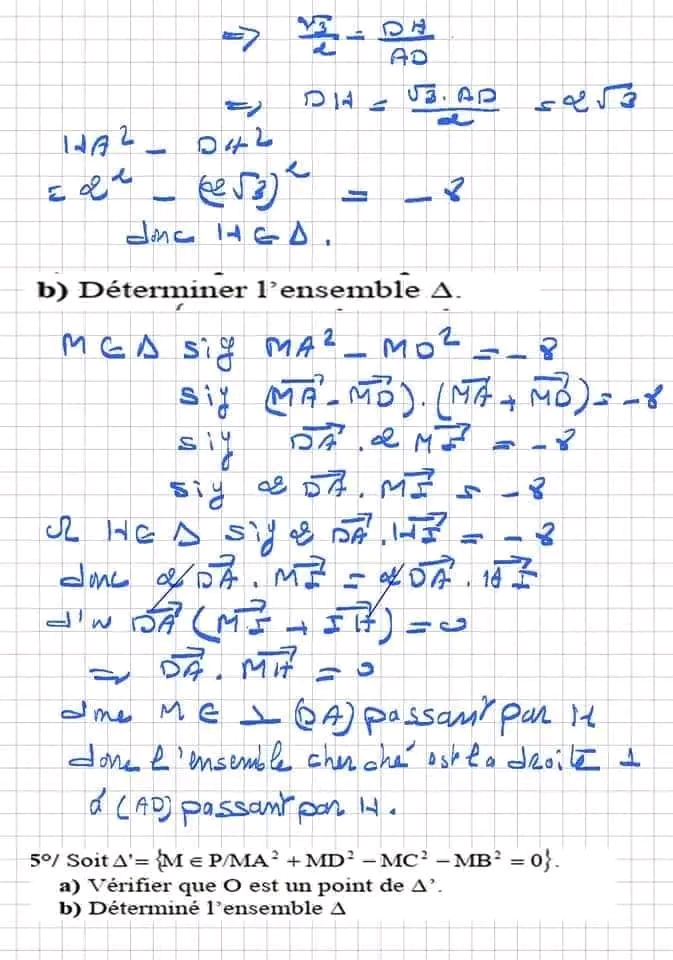 => √3/2 = DH/AD
=> DH = √3.AD/2 = 2√3
HA² - DH²
= 2² - (2√3)² = -8
donc H ∈ Δ.
b) Déterminer l'ensemble Δ.
M ∈ Δ sig MA² - MD² = -8
sig (MA⃗ - MD⃗).(MA⃗ + MD⃗) = -8
sig DA⃗ . 2 MI⃗ = -8
sig 2 DA⃗ . MI⃗ = -8
or H ∈ Δ sig 2 DA⃗ . HI⃗ = -8
donc 2 DA⃗ . MI⃗ = 2 DA⃗ . HI⃗
d'où DA⃗ (MI⃗ + IH⃗) = 0
=> DA⃗ . MH⃗ = 0
donc M ∈ ⊥ (DA) passant par H
donc l'ensemble cherché est la droite ⊥
à (AD) passant par H.
5°/ Soit Δ'= {M ∈ P/MA² + MD² − MC² − MB² = 0}.
a) Vérifier que O est un point de Δ'.
b) Déterminé l'ensemble Δ